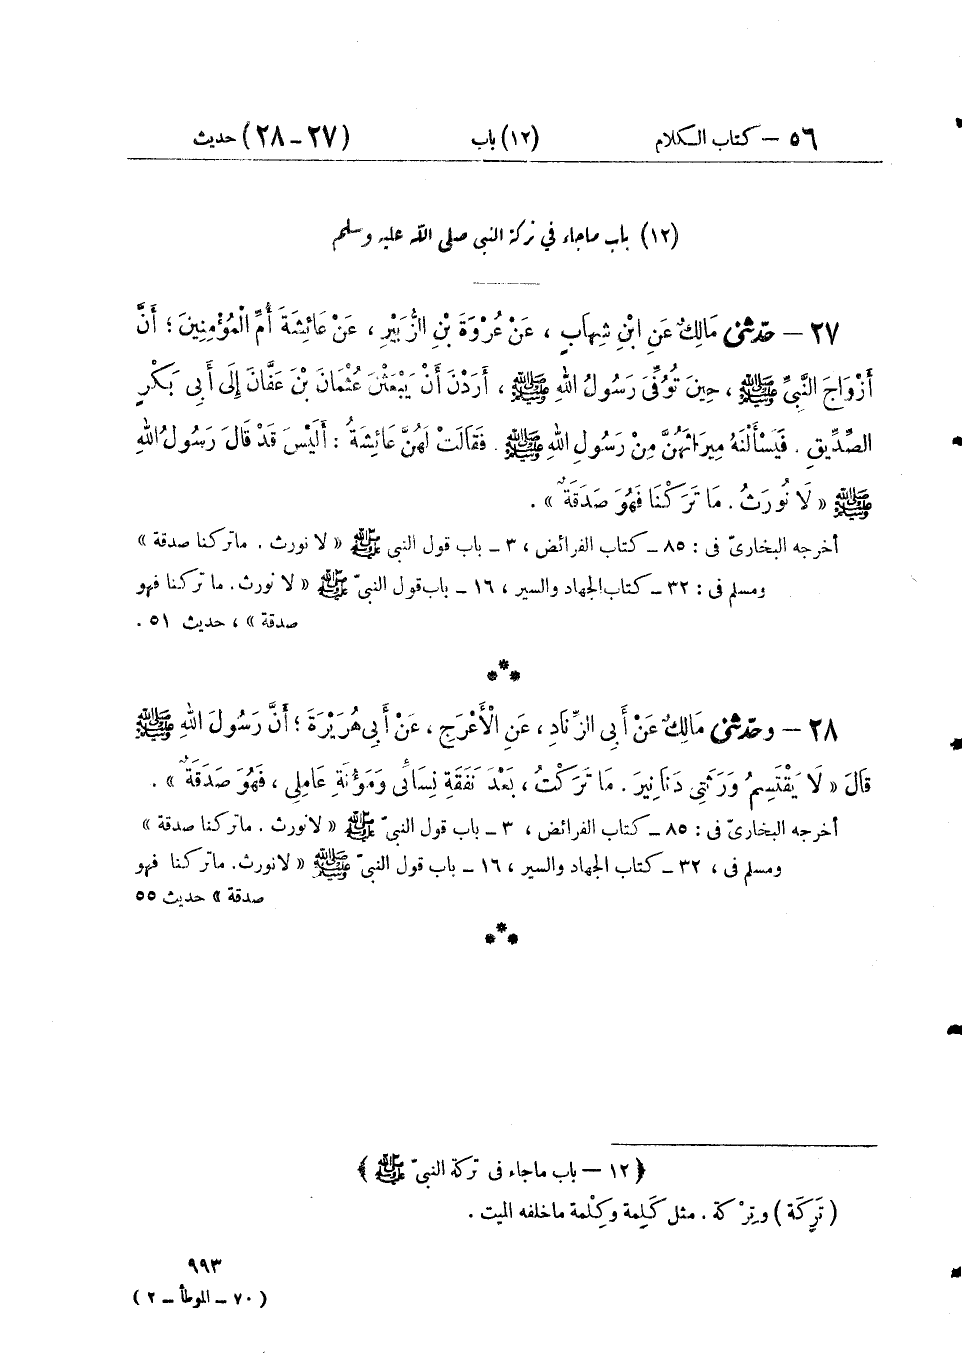 ٥٦ — كتاب الكلام (١٢) باب (٢٧-٢٨) حديث
(١٢) باب ماجاء في تركة النبي صلى الله عليه وسلم
٢٧ — حَدَّثَنِي مَالِكٌ عَنِ ابْنِ شِهَابٍ ، عَنْ عُرْوَةَ بْنِ الزُّبَيْرِ ، عَنْ عَائِشَةَ أُمِّ الْمُؤْمِنِينَ ؛ أَنَّ
أَزْوَاجَ النَّبِيِّ ﷺ ، حِينَ تُوُفِّيَ رَسُولُ اللهِ ﷺ ، أَرَدْنَ أَنْ يَبْعَثْنَ عُثْمَانَ بْنَ عَفَّانَ إِلَى أَبِي بَكْرٍ
الصِّدِّيقِ . فَيَسْأَلْنَهُ مِيرَاثَهُنَّ مِنْ رَسُولِ اللهِ ﷺ . فَقَالَتْ لَهُنَّ عَائِشَةُ : أَلَيْسَ قَدْ قَالَ رَسُولُ اللهِ
ﷺ « لَا نُورَثُ . مَا تَرَكْنَا فَهُوَ صَدَقَةٌ » .
أخرجه البخارىّ فى : ٨٥ ـ كتاب الفرائض ، ٣ ـ باب قول النبى ﷺ « لا نورث . ماتركنا صدقة »
ومسلم فى : ٣٢ ـ كتاب الجهاد والسير ، ١٦ ـ باب قول النبىّ ﷺ « لا نورث. ما تركنا فهو
صدقة » ، حديث ٥١ .
٢٨ — وحَدَّثَنِي مَالِكٌ عَنْ أَبِي الزِّنَادِ ، عَنِ الْأَعْرَجِ ، عَنْ أَبِي هُرَيْرَةَ ؛ أَنَّ رَسُولَ اللهِ ﷺ
قَالَ « لَا يَقْتَسِمُ وَرَثَتِي دَنَانِيرَ . مَا تَرَكْتُ ، بَعْدَ نَفَقَةِ نِسَائِي وَمَؤُنَةِ عَامِلِي ، فَهُوَ صَدَقَةٌ » .
أخرجه البخارىّ فى : ٨٥ ـ كتاب الفرائض ، ٣ ـ باب قول النبىّ ﷺ « لانورث . ماتركنا صدقة »
ومسلم فى ، ٣٢ ـ كتاب الجهاد والسير ، ١٦ ـ باب قول النبىّ ﷺ « لانورث. ماتركنا فهو
صدقة » حديث ٥٥
﴿ ١٢ — باب ماجاء فى تركة النبىّ ﷺ ﴾
( تَرِكَة ) وتِرْكة . مثل كَلِمة وكِلْمة ماخلفه الميت .
٩٩٣
( ٧٠ ـ الموطأ ـ ٢ )